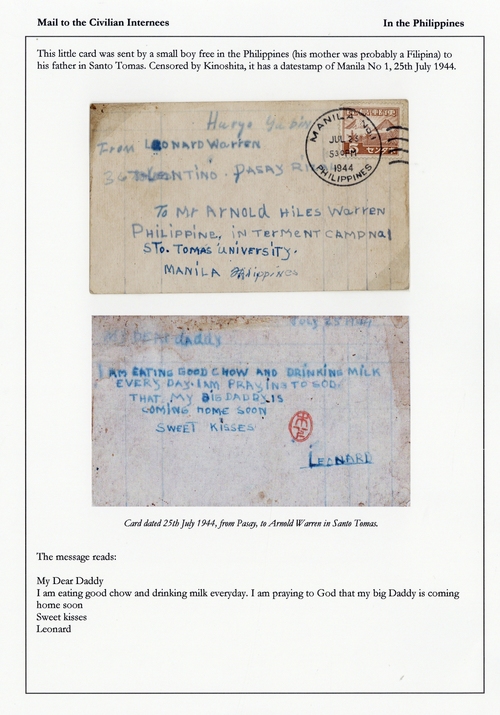 Mail to the Civilian Internees
In the Philippines
This little card was sent by a small boy free in the Philippines (his mother was probably a Filipina) to
his father in Santo Tomas. Censored by Kinoshita, it has a datestamp of Manila No 1, 25th July 1944.
MANILA No.1
JUL 25
530PM
1944
PHILIPPINES
From LEONARD Warren
PASAY
To Mr ARNOLD HILES Warren
PHILIPPINE, INTERMENT CAMP NO1
STO. TOMAS UNIVERSITY.
MANILA Philippines
July 25 1944
MY DEAR daddy
I AM EATING GOOD CHOW AND DRINKING MILK
EVERY DAY. I AM PRAYING TO GOD.
THAT MY BIG DADDY IS
COMING HOME SOON
SWEET KISSES
LEONARD
Card dated 25th July 1944, from Pasay, to Arnold Warren in Santo Tomas.
The message reads:
My Dear Daddy
I am eating good chow and drinking milk everyday. I am praying to God that my big Daddy is coming
home soon
Sweet kisses
Leonard